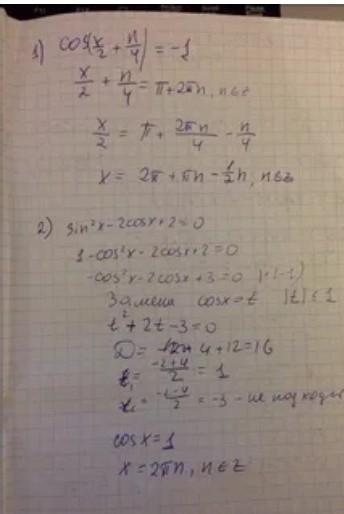 1) cos(x/2 + π/4) = -1
x/2 + π/4 = π + 2πn, n∈z
x/2 = π + 2πn/4 - π/4
x = 2π + πn - 1/2 n, n∈z
2) sin²x - 2cosx + 2 = 0
1 - cos²x - 2cosx + 2 = 0
-cos²x - 2cosx + 3 = 0 |·(-1)
Замена cosx = t |t| ≤ 1
t² + 2t - 3 = 0
D = 4 + 12 = 16
t₁ = (-2+4)/2 = 1
t₂ = (-2-4)/2 = -3 - не подходит
cosx = 1
x = 2πn, n∈z